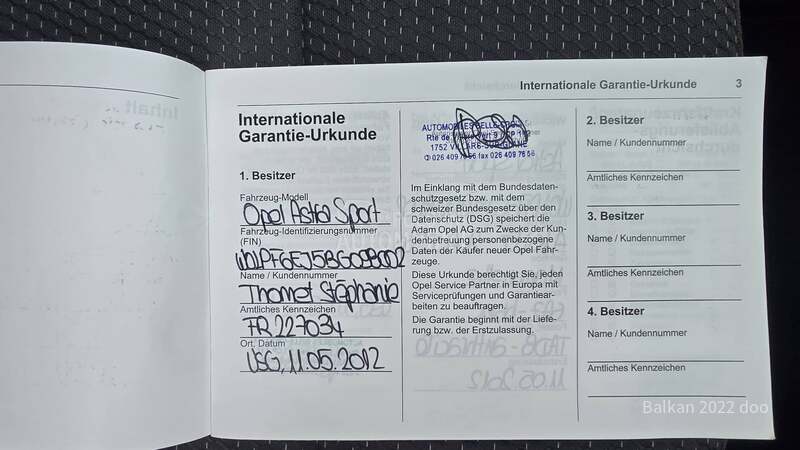 Internationale Garantie-Urkunde 3
Internationale
Garantie-Urkunde
1. Besitzer
Fahrzeug-Modell
Opel Astra Sport
Fahrzeug-Identifizierungsnummer
(FIN)
W0LPF6EJ5BG098002
Name / Kundennummer
Thomet Stéphanie
Amtliches Kennzeichen
FR 227034
Ort, Datum
VSG, 11.05.2012
AUTOMOBILES BELLE-CROIX
Rte de
1752 VILLARS-SUR-GLANE
026 409 76 66 fax 026 409 76 66
Im Einklang mit dem Bundesdaten-
schutzgesetz bzw. mit dem
schweizer Bundesgesetz über den
Datenschutz (DSG) speichert die
Adam Opel AG zum Zwecke der Kun-
denbetreuung personenbezogene
Daten der Käufer neuer Opel Fahr-
zeuge.
Diese Urkunde berechtigt Sie, jeden
Opel Service Partner in Europa mit
Serviceprüfungen und Garantiear-
beiten zu beauftragen.
Die Garantie beginnt mit der Liefe-
rung bzw. der Erstzulassung.
2. Besitzer
Name / Kundennummer
Amtliches Kennzeichen
3. Besitzer
Name / Kundennummer
Amtliches Kennzeichen
4. Besitzer
Name / Kundennummer
Amtliches Kennzeichen
Balkan 2022 doo